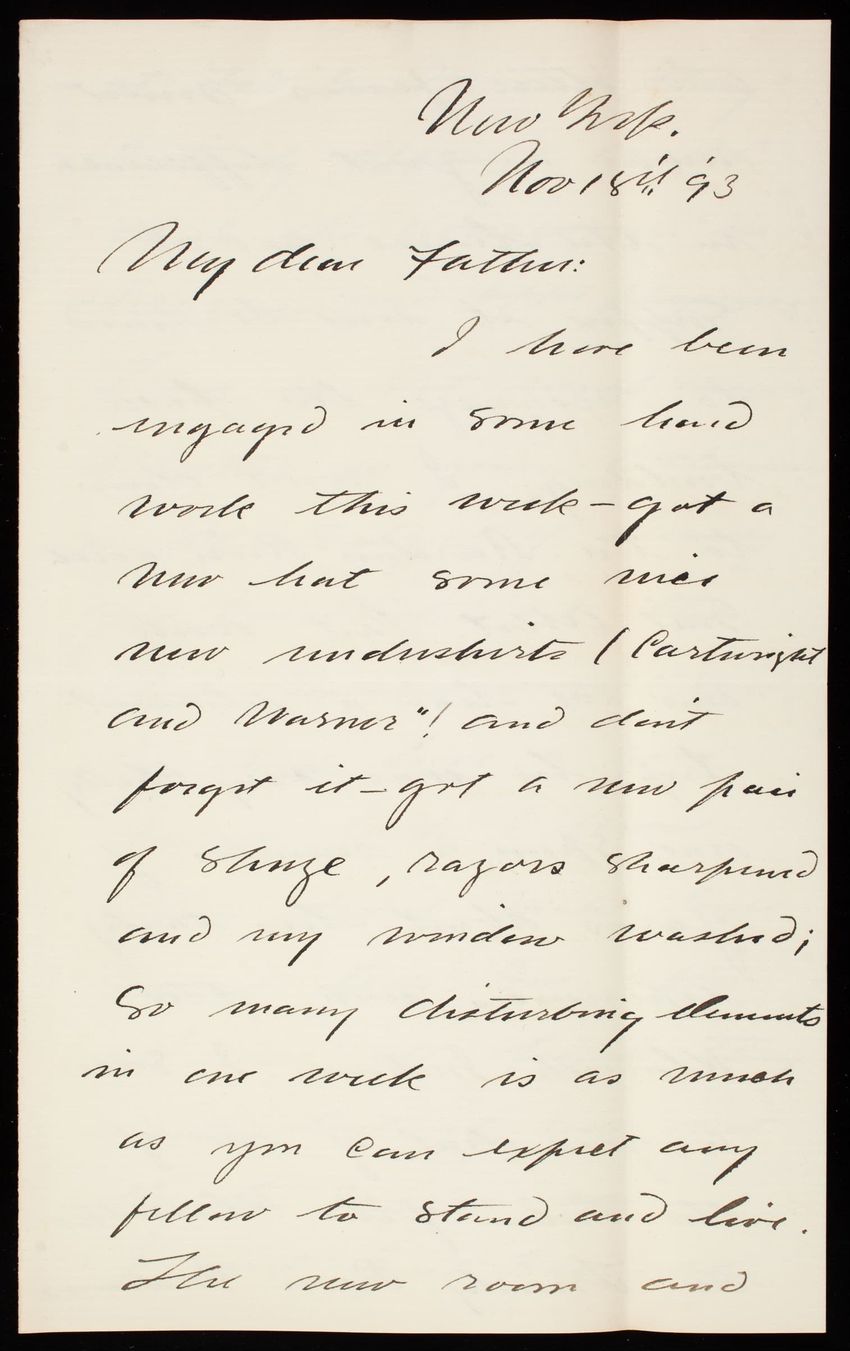 New York.
Nov 18th '93
My dear Father:
I have been
engaged in some hard
work this week – got a
new hat some nice
new undershirts (Cartwright
and Warner"! and don't
forget it – got a new pair
of shuze, razors sharpened
and my window washed;
So many disturbing elements
in one week is as much
as you can expect any
fellow to stand and live.
The new room and